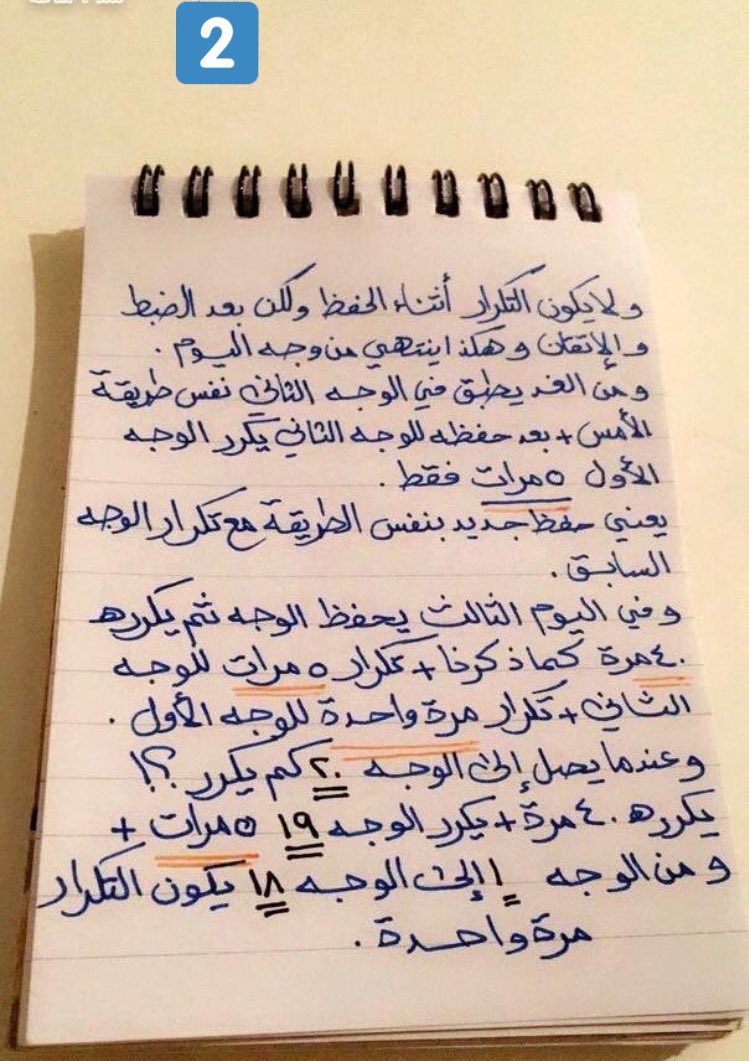 2
ولا يكون التكرار أثناء الحفظ ولكن بعد الضبط
والإتقان وهكذا ينتهي من وجه اليوم .
ومن الغد يطبق في الوجه الثاني نفس طريقة
الأمس + بعد حفظه للوجه الثاني يكرر الوجه
الأول ٥ مرات فقط .
يعني حفظ جديد بنفس الطريقة مع تكرار الوجه
السابق .
وفي اليوم الثالث يحفظ الوجه ثم يكرره
٤٠ مرة كما ذكرنا + تكرار ٥ مرات للوجه
الثاني + تكرار مرة واحدة للوجه الأول .
وعندما يصل إلى الوجه ٢٠ كم يكرر ؟!
يكرره ٤٠ مرة + يكرر الوجه ١٩ ٥ مرات +
ومن الوجه ١ إلى الوجه ١٨ يكون التكرار
مرة واحدة .